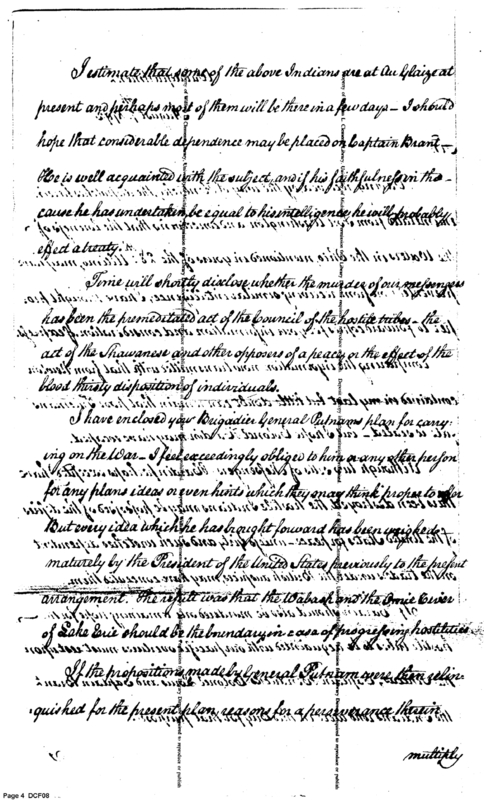 I estimate that some of the above Indians are at Au Glaize at
present and perhaps most of them will be there in a few days – I should
hope that considerable dependence may be placed on Captain Brant –
He is well acquainted with the subject, and if his faithfulness in the
cause he has undertaken be equal to his intelligence, he will probably
effect a treaty.
Time will shortly disclose whether the murder of our messengers
has been the premeditated act of the Council of the hostile tribes – the
act of the Shawanese and other opposers of a peace, or the effect of the
blood thirsty disposition of individuals.
I have enclosed you Brigadier General Putnams plan for carry:
ing on the War – I feel exceedingly obliged to him or any other person
for any plans ideas or even hints which they may think proper to offer
But every idea which he has brought forward has been weighed
maturely by the President of the United States previously to the present
arrangement. The result was that the Wabash and the Omie River
of Lake Erie should be the boundary in case of progressing hostilities
If the propositions made by General Putnam were then relin-
quished for the present plan, reasons for a perseverance therein
multiply
Page 4 DCF08